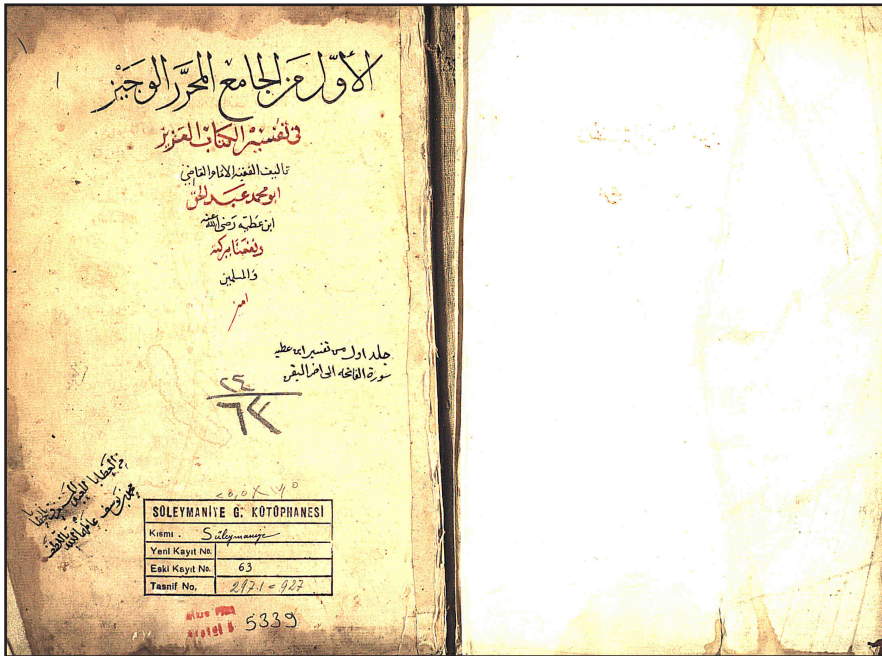 الأوّل من الجامع المحرّر الوجيز
في تفسير الكتاب العزيز
تاليف الفقيه الامام القاضي
ابو محمد عبد الحق
ابن عطيه رضى الله عنه
ونفعنا ببركته
والمسلمين
امين
جلد اول من تفسير ابن عطيه
سورة الفاتحه الى اخر البقره
٢٤
٦٣
SÜLEYMANİYE G. KÜTÜPHANESİ
Kısmı . Süleymaniye
Yeni Kayıt No.
Eski Kayıt No. 63
Tasnif No. 297.1 = 927
5339